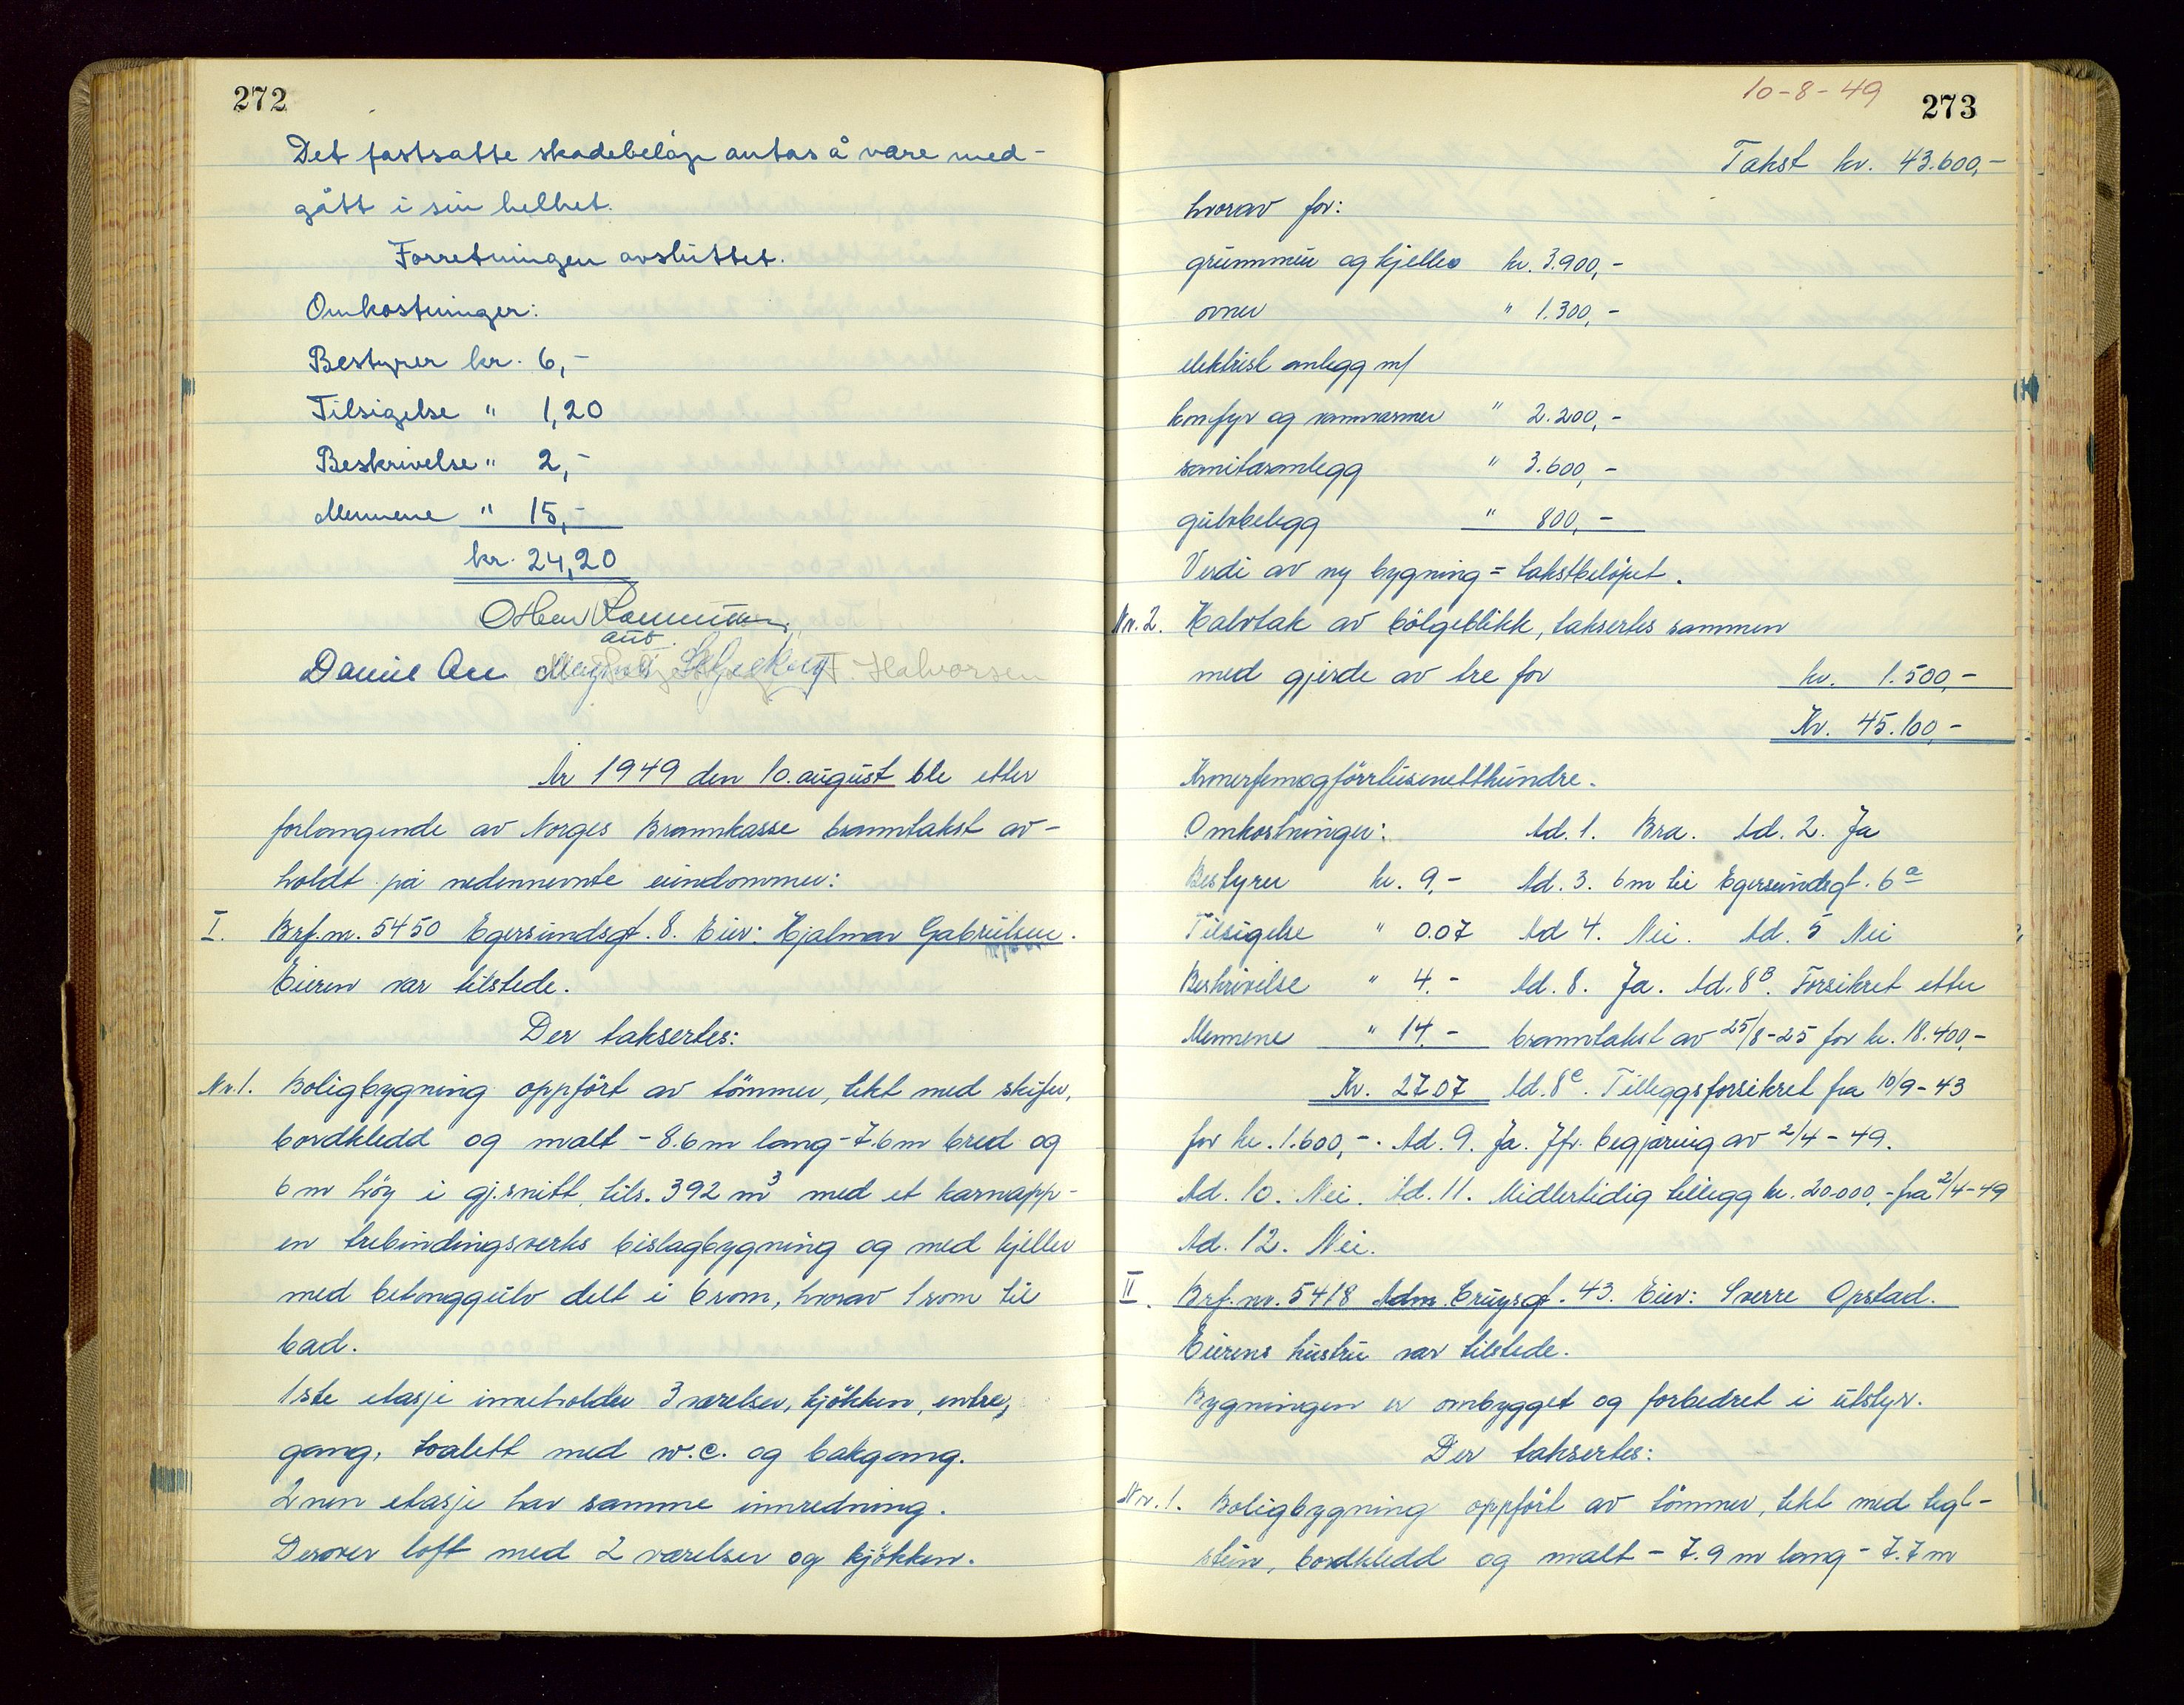 272
Det fastsatte skadebeløp antas å være med-
gått i sin helhet.
Forretningen avsluttet.
Omkostninger:
Bestyrer kr. 6,-
Tilsigelse " 1,20
Beskrivelse " 2,-
Mennene " 15,-
kr. 24,20
aut.
Halvorsen
År 1949 den 10. august ble etter
forlangende av Norges Brannkasse branntakst av-
holdt på nedennevnte eiendommer:
I. Brf.nr. 5450 Egersundsgt. 8. Eier: Hjalmar Gabrielsen.
Eieren var tilstede.
Der taksertes:
Nr. 1. Boligbygning oppført av tömmer, tekt med skifer,
bordkledd og malt - 8.6 m lang - 7.6 m bred og
6 m höy i gj.snitt, tils. 392 m3 med et karnapp-
en trebindingsverks bislagbygning og med kjeller
med betonggulv delt i 6 rom, hvorav 1 rom til
bad.
1ste etasje inneholder 3 værelser, kjökken, entre,
gang, toalett med w.c. og bakgang.
2nen etasje har samme innredning.
Derover loft med 2 værelser og kjökken.
10-8-49
273
Takst kr. 43.600,-
hvorav for:
grunnmur og kjeller kr. 3.900,-
ovner " 1.300,-
elektrisk anlegg m/
komfyr og vannvarmer " 2.200,-
sanitæranlegg " 3.600,-
gulvbelegg " 800,-
Verdi av ny bygning = takstbelöpet.
Nr. 2. Halvtak av bölgeblikk, taksertes sammen
med gjerde av tre for kr. 1.500,-
Kr. 45.100,-
Kronerfemogförrtitusenetthundre.
Omkostninger: Ad. 1. Bra. Ad. 2. Ja
Bestyrer kr. 9,- Ad. 3. 6 m til Egersundsgt. 6a
Tilsigelse " 0.07 Ad 4. Nei. Ad. 5 Nei
Beskrivelse " 4.- Ad. 8. Ja. Ad. 8B. Forsikret etter
Mennene " 14.- branntakst av 25/8-25 for kr. 18.400,-
Kr. 27.07 Ad. 8c. Tilleggsforsikret fra 10/9-43
for kr. 1.600,-. Ad. 9. Ja. Jfr. begjæring av 2/4-49.
Ad. 10. Nei. Ad. 11. Midlertidig tillegg kr. 20.000,- fra 2/4-49
Ad. 12. Nei.
II. Brf.nr. 5418 Adm. Cruysgt. 43. Eier: Sverre Opstad.
Eierens hustru var tilstede.
Bygningen er ombygget og forbedret i utstyr.
Der taksertes:
Nr. 1. Boligbygning oppfört av tömmer, tekt med tegl-
stein, bordkledd og malt - 7.9 m lang - 7.7 m